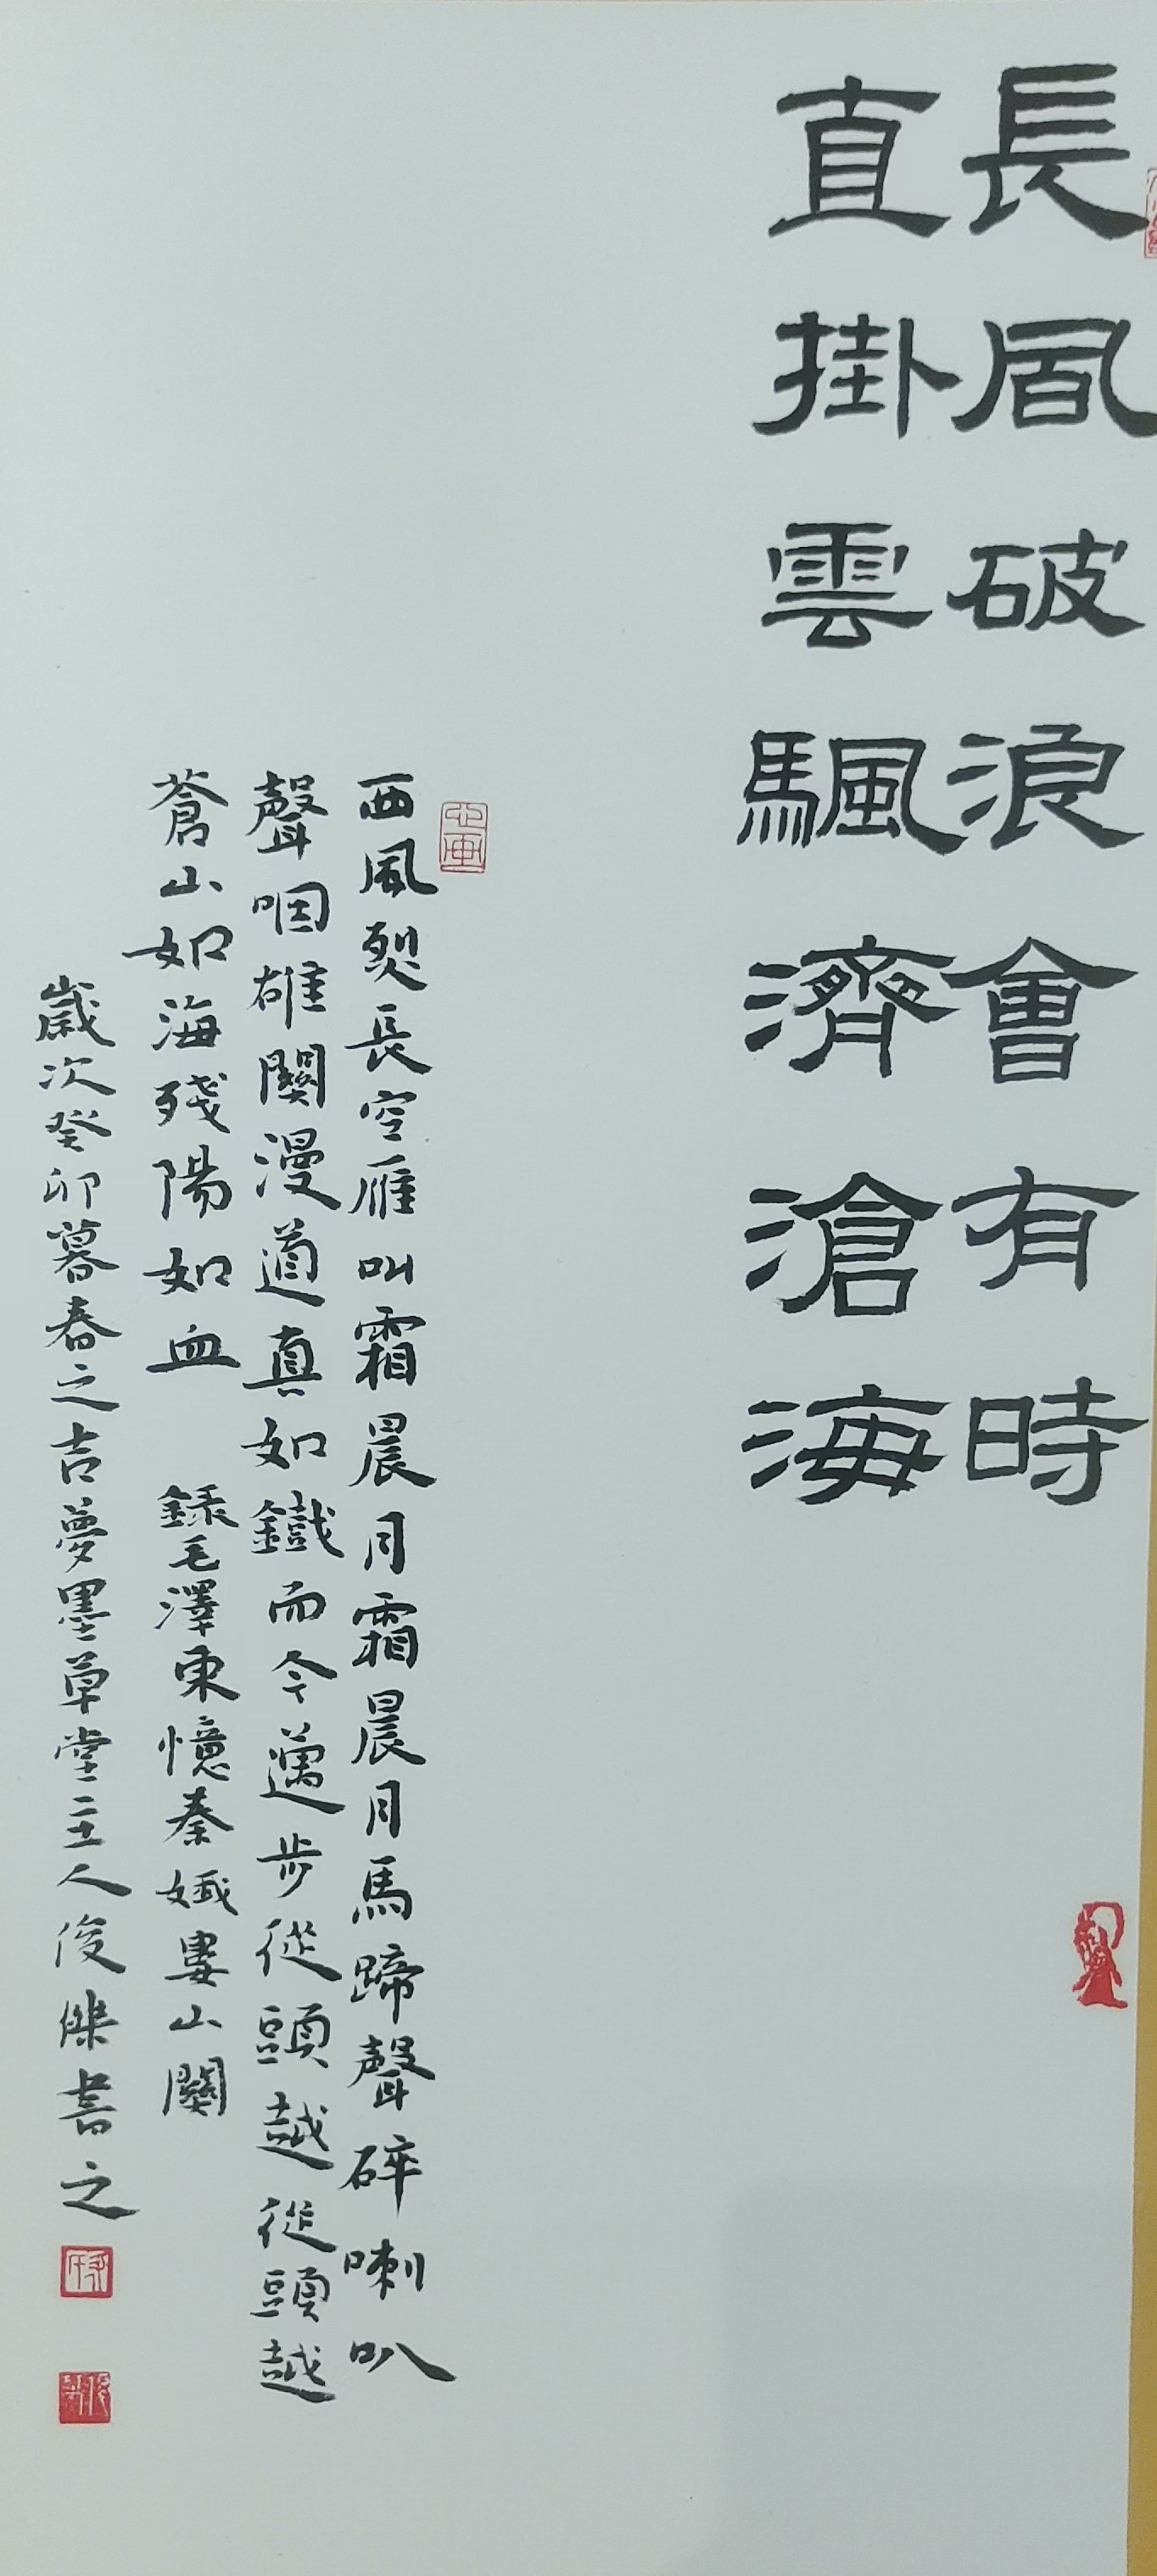 長風破浪會有時
直掛雲颿濟滄海
西風烈長空雁叫霜晨月霜晨月馬蹄聲碎喇叭
聲咽雄關漫道真如鐵而今邁步從頭越從頭越
蒼山如海殘陽如血 錄毛澤東憶秦娥婁山關
歲次癸卯暮春之吉夢墨草堂主人俊傑書之